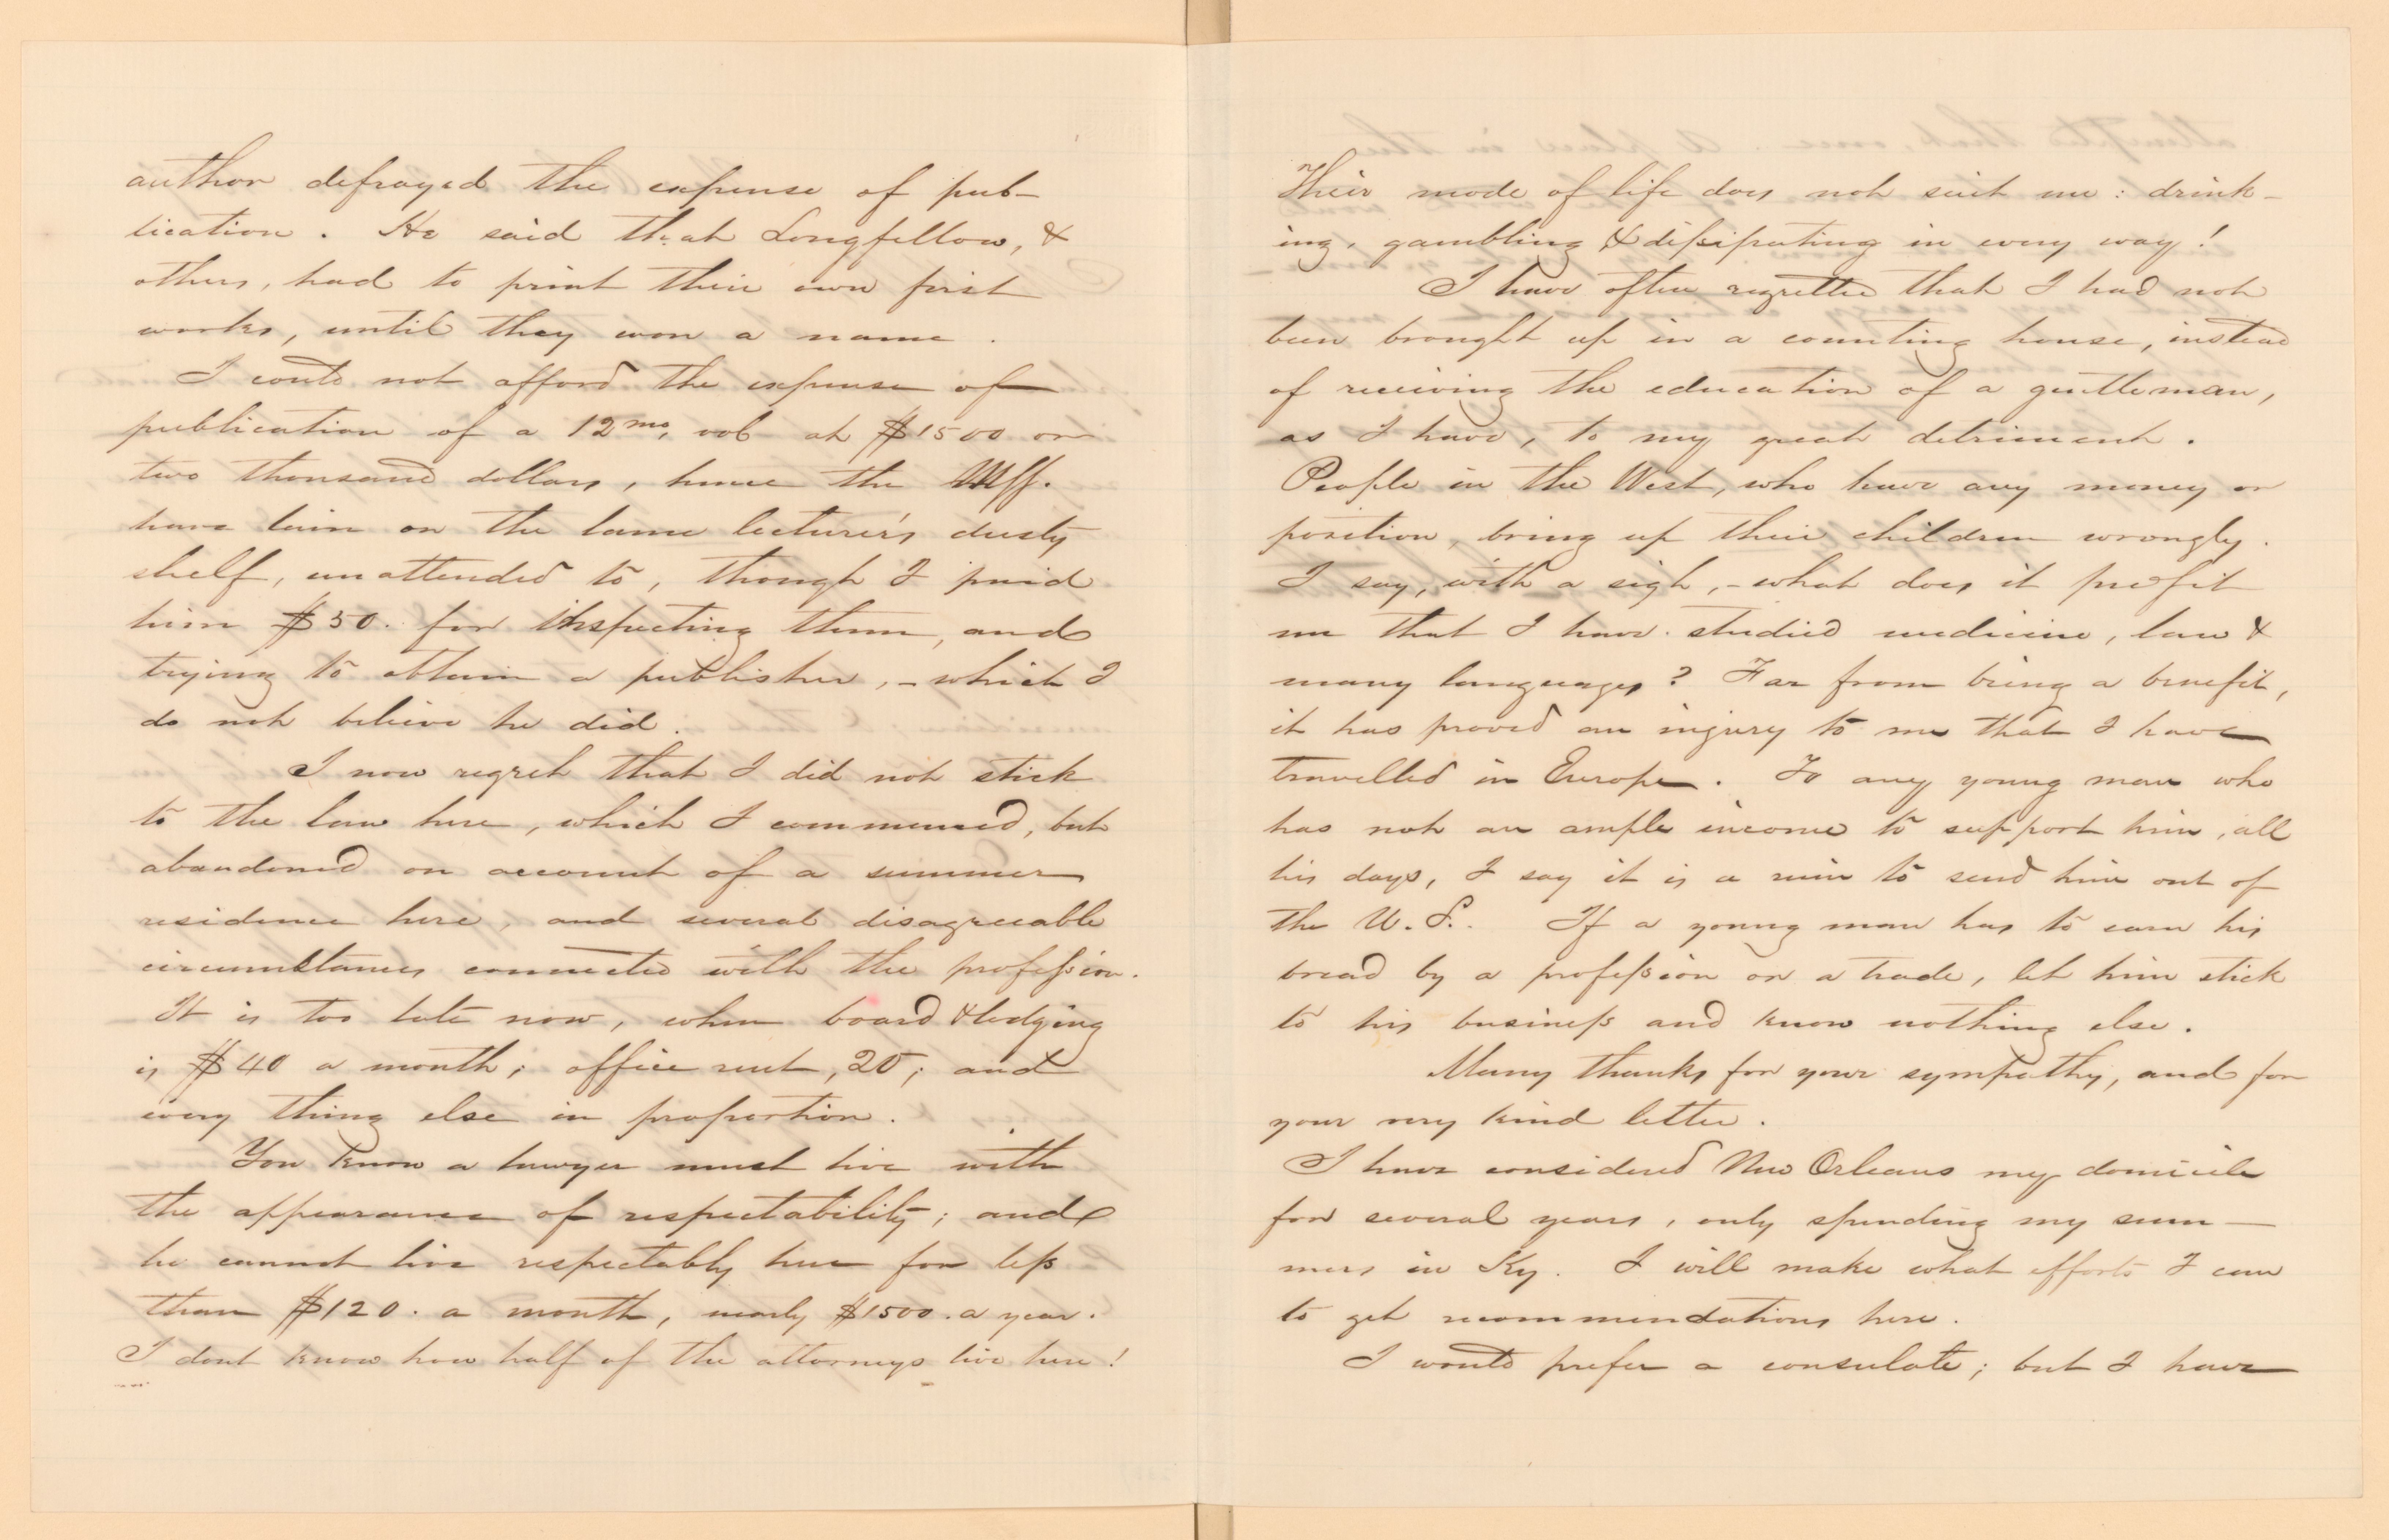 author defrayed the expense of pub-
lication. He said that Longfellow, &
others, had to print their own first
works, until they won a name.
I could not afford the expense of
publication of a 12mo, vol at $1500 or
two thousand dollars, hence the MSS.
have lain on the lame lecturer's dusty
shelf, unattended to, though I paid
him $50. for inspecting them, and
trying to obtain a publisher, - which I
do not believe he did.
I now regret that I did not stick
to the law here, which I commenced, but
abandoned on account of a summer
residence here, and several disagreeable
circumstances connected with the profession.
It is too late now, when board & lodging
is $40 a month; office rent, 20; and
every thing else in proportion.
You know a lawyer must live with
the appearance of respectability; and
he cannot live respectably here for less
than $120. a month, nearly $1500. a year.
I dont know how half of the attorneys live here!
Their mode of life does not suit me: drink-
ing, gambling & dissipating in every way!
I have often regretted that I had not
been brought up in a counting house, instead
of receiving the education of a gentleman,
as I have, to my great detriment.
People in the West, who have any money or
position, bring up their children wrongly.
I say, with a sigh, - what does it profit
me that I have studied medicine, law &
many languages? Far from being a benefit,
it has proved an injury to me that I have
travelled in Europe. To any young man who
has not an ample income to support him, all
his days, I say it is a ruin to send him out of
the U.S. If a young man has to earn his
bread by a profession or a trade, let him stick
to his business and know nothing else.
Many thanks for your sympathy, and for
your very kind letter.
I have considered New Orleans my domicile
for several years, only spending my sum-
mers in Ky. I will make what efforts I can
to get recommendations here.
I would prefer a consulate; but I have